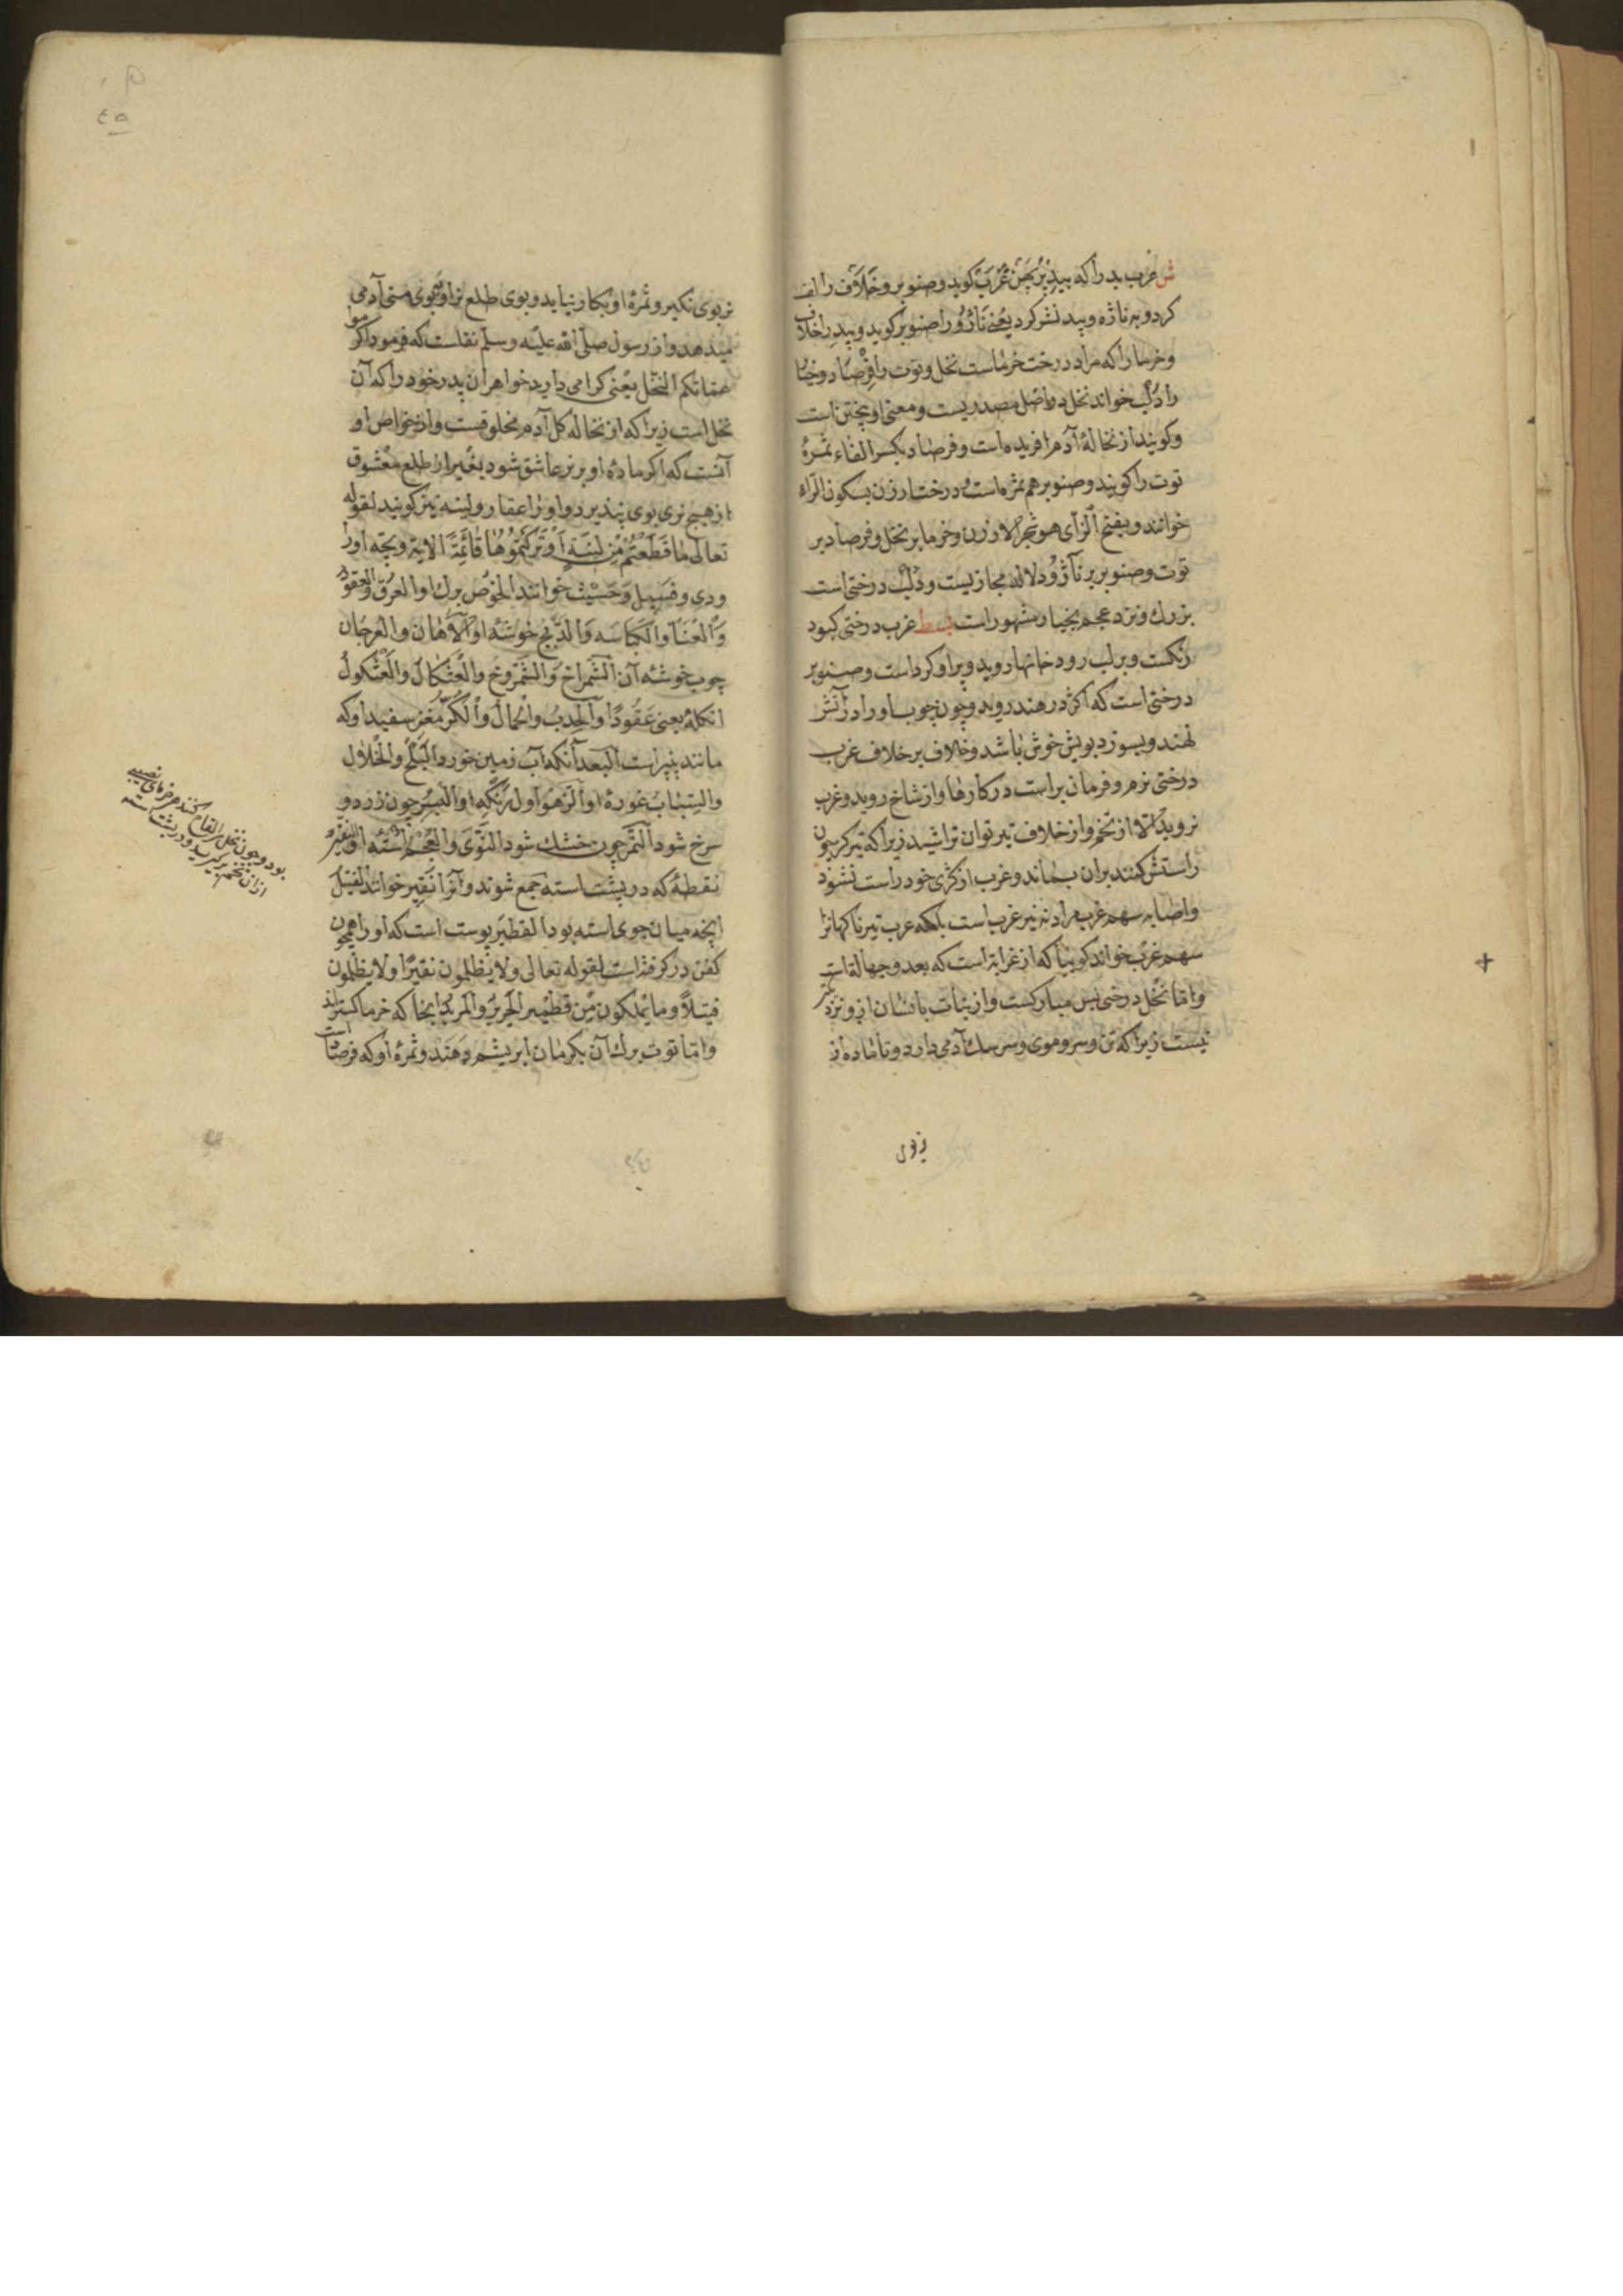 ش غرب بد را که بید غرب کوید و صنوبر و خلاف را لف
کرد و به ناژه و بید نشر کرد یعنی ناژو را صنوبر کوید و بید را خلاف
و خرما را که مراد درخت خرماست نخل و توت را فرصاد و
را دلب خواند نخل در اصل مصدریست و معنی او بیختن است
و کویند از نخالهٔ آدم افریده است و فرصاد بکسر الفاء ثمرهٔ
توت را کویند و صنوبر هم ثمره است و درخت ارزن بسکون الراء
خوانند و بفتح الرای هو شجر الارزن و خرما بر نخل و فرصاد بر
توت و صنوبر بر ناژو دلاله مجازیست و دلب درختی است
بزرك و نزد عجم بخیار مشهور است بسط غرب درختی کبود
رنکست و بر لب رودخانها روید و پر او کرد است و صنوبر
درختی است که اکثر در هند روید و چون چوب او را در آتش
نهند و بسوزد بویش خوش باشد و خلاف بر خلاف غرب
درختی نرم و فرمان بر است در کارها و از شاخ روید و غرب
نروید الا از تخم و از خلاف تیر توان تراشید زیرا که تیر کر چون
راستش کنند بران بماند و غرب از کژی خود راست نشود
و اصابه سهم غرب مراد نه تیر غرب است بلکه عرب تیر ناکهان را
سهم غرب خواند کوییا که از غرابة است که بعد و جهالة است
و اما نخل درختی بس مبارکست و از نبات بانسان ازو نزدیکتر
نیست زیرا که تن و سر و موی و سرسك آدمی دارد و تا ماده از
نر بوی نکیر و ثمرهٔ او بکار نیاید و بوی طلع نر او بوی منی آدمی
میدهد و از رسول صلی الله علیه و سلم نقلست که فرمود اکرموا
عماتکم النخل یعنی کرامی دارید خواهران پدر خود را که آن
نخل است زیرا که از نخاله کل آدم مخلوقست و از خواص او
آنست که اکر مادهٔ او بر نر عاشق شود بغیر از طلع معشوق
از هیچ نری بوی نپذیرد و او را عقار و لینه نیز کویند لقوله
تعالی ما قطعتم من لینة او ترکتموها قائمة الایة و بچه او را
ودی و فسیل و خوانند الخوص برك او العرق و العقود
و العنا و الکباسه و الذیخ خوشه او الاهان و العرجان
چوب خوشه آن الشمراخ و الشمروخ و العثکال و العثکول
انکله یعنی عقودا و الجذب و الجمار و الکثر مغز سفید او که
مانند پنیر است البعد آنکه آب زمین خورد البلح و الخلال
و السیاب غورهٔ او الزهو اول رنکه او البسر چون زرد و
سرخ شود التمر چون خشك شود النوی و العجم استه او النقیر
نقطهٔ که در پشت استه جمع شوند و آنرا نقیر خوانند الفتیل
انچه میان جوی استه بود القطمیر پوست است که او را همچون
کفن در کرفته است لقوله تعالی و لا یظلمون نقیرا و لا یظلمون
فتیلا و ما یملکون من قطمیر الجرین و المربد انجا که خرما کسترانند
و اما توت برك آن بکرمان ابریشم دهند و ثمرهٔ او که فرصاد است
بود و چون نخل را لقاح کنند هر خرمای
ازان تخم برکیرید و در پشت استه